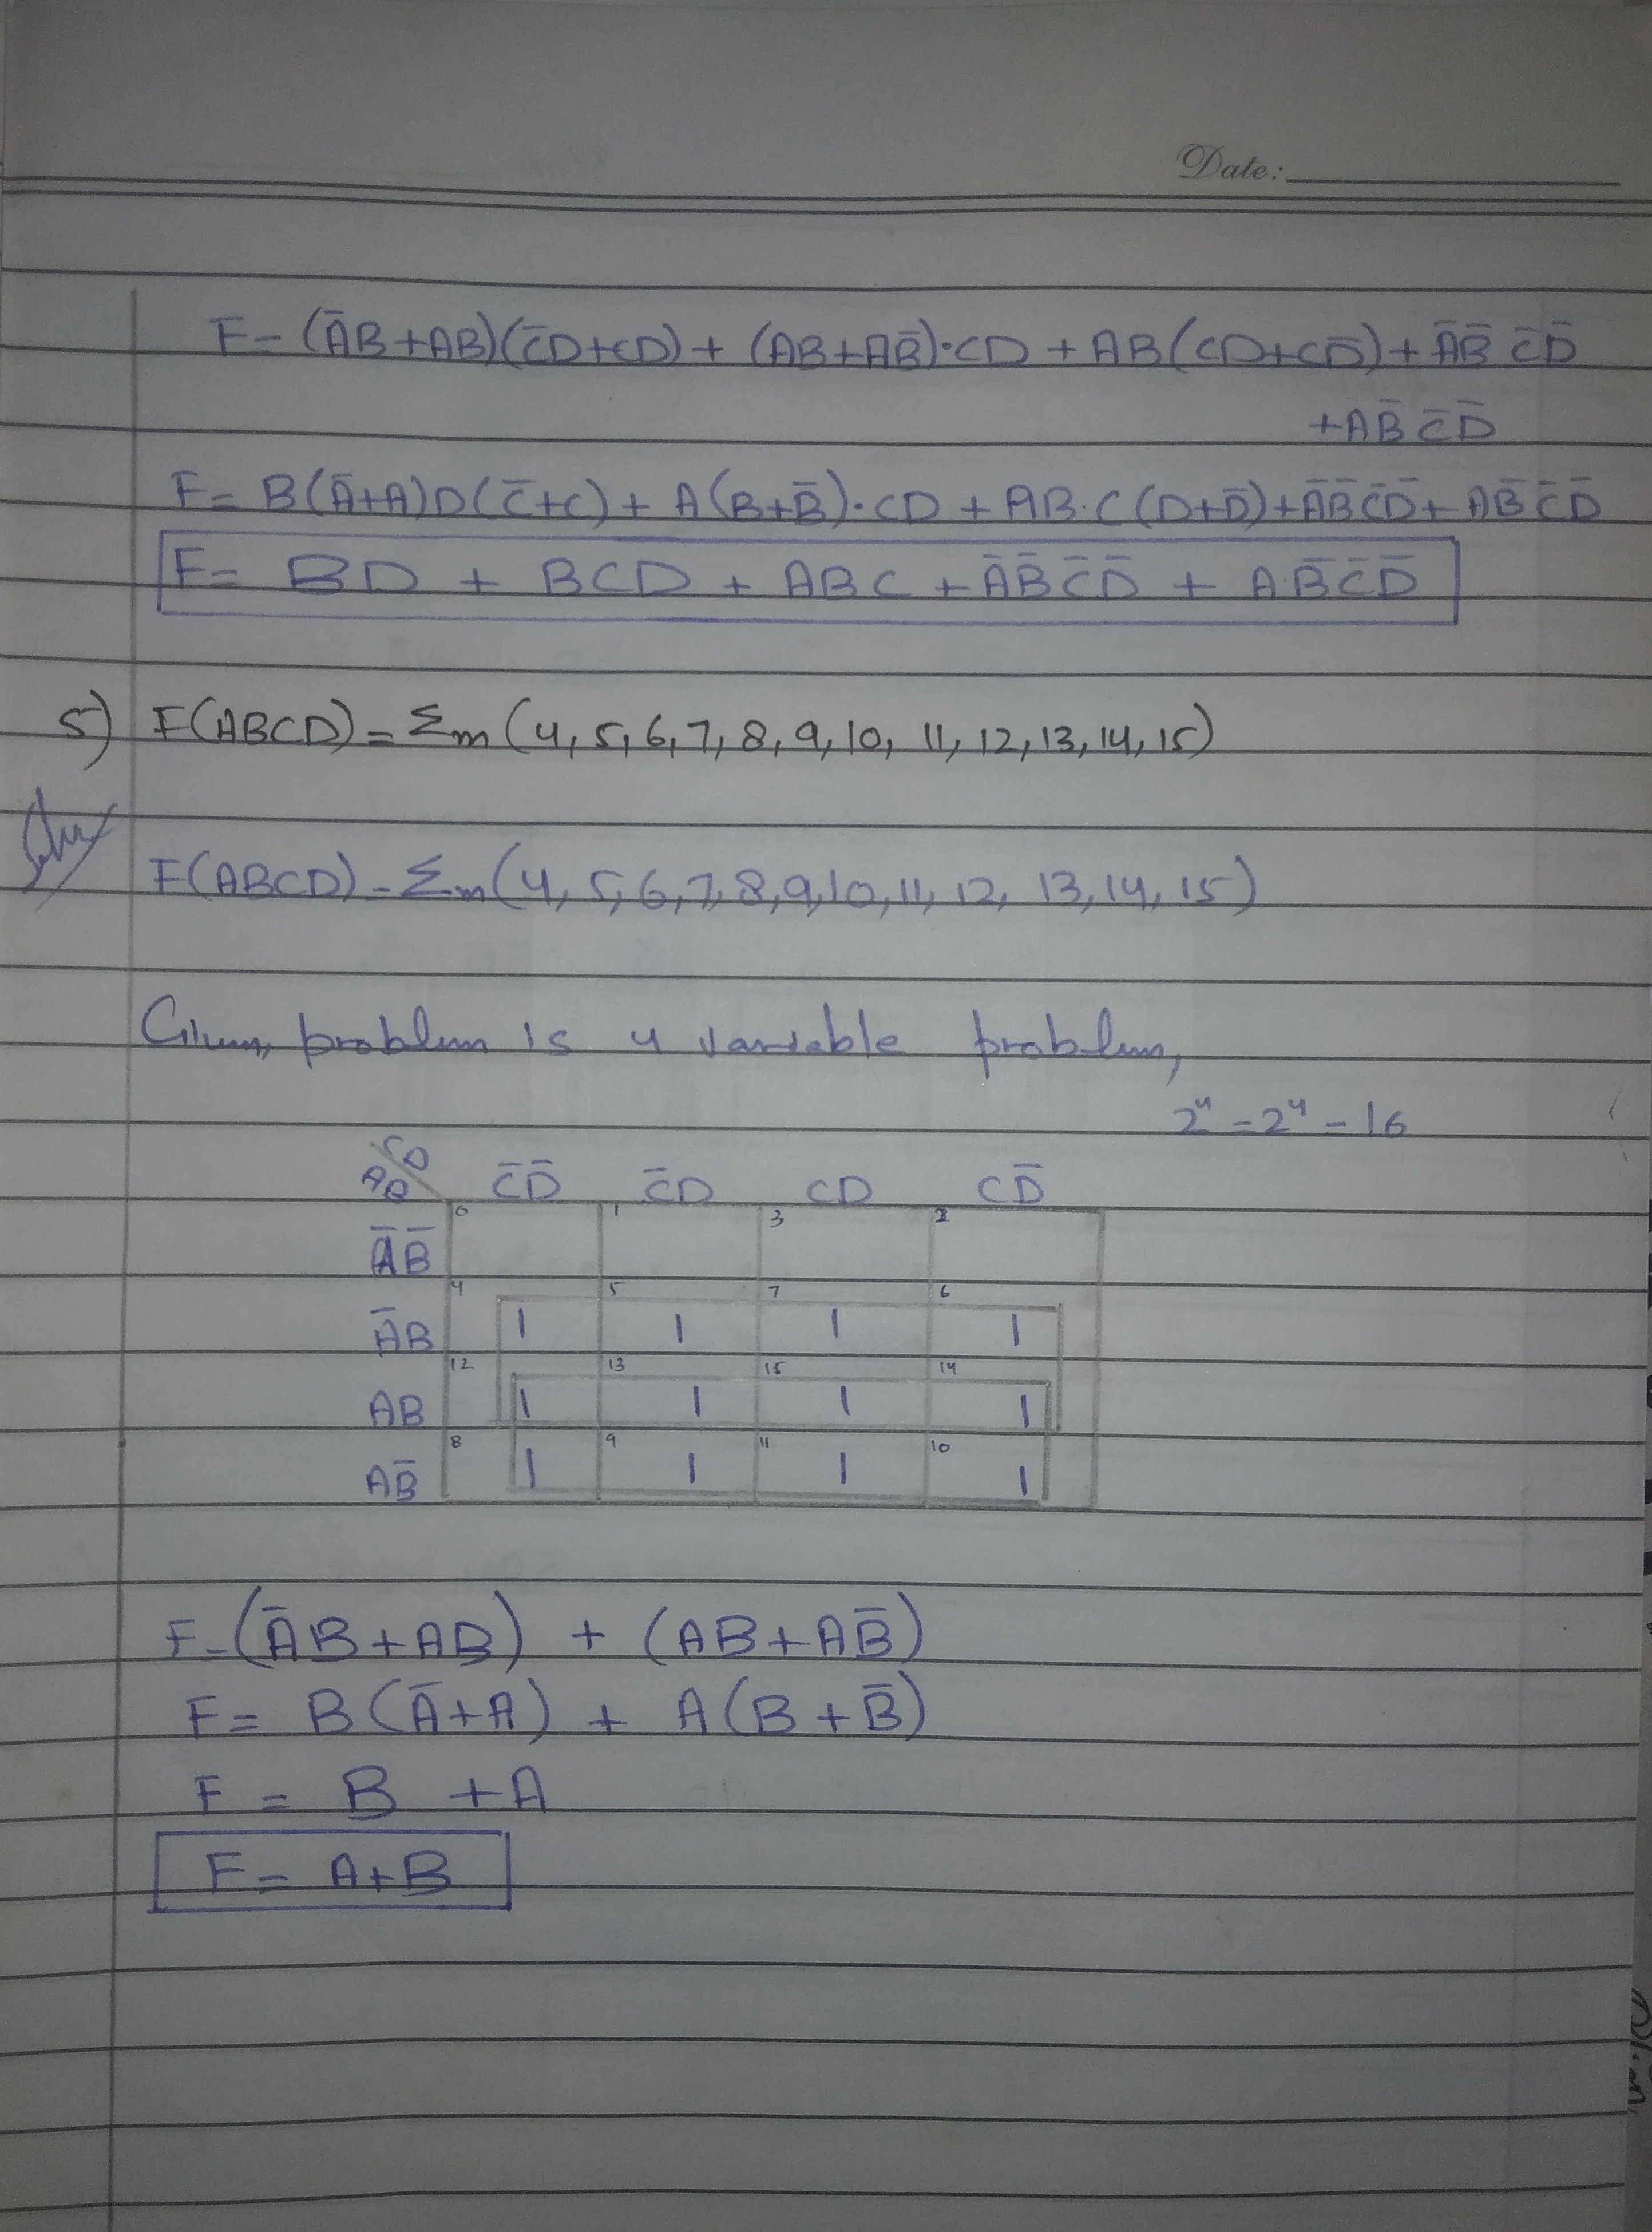 Date:
F = (A̅B+AB)(C̅D+CD) + (AB+AB̅)·CD + AB(CD+CD̅) + A̅B̅ C̅D̅
+AB̅ C̅D̅
F = B(A̅+A)D(C̅+C) + A(B+B̅)·CD + AB·C(D+D̅) + A̅B̅C̅D̅ + AB̅C̅D̅
F = BD + BCD + ABC + A̅B̅C̅D̅ + AB̅C̅D̅
5) F(ABCD) = Σm (4, 5, 6, 7, 8, 9, 10, 11, 12, 13, 14, 15)
F(ABCD) = Σm (4, 5, 6, 7, 8, 9, 10, 11, 12, 13, 14, 15)
Given, problem is 4 variable problem,
2⁴ = 2⁴ = 16
CD
AB C̅D̅ C̅D CD CD̅
0 1 3 2
A̅B̅
4 5 7 6
A̅B 1 1 1 1
12 13 15 14
AB 1 1 1 1
8 9 11 10
AB̅ 1 1 1 1
F = (A̅B+AB) + (AB+AB̅)
F = B(A̅+A) + A(B+B̅)
F = B +A
F = A+B